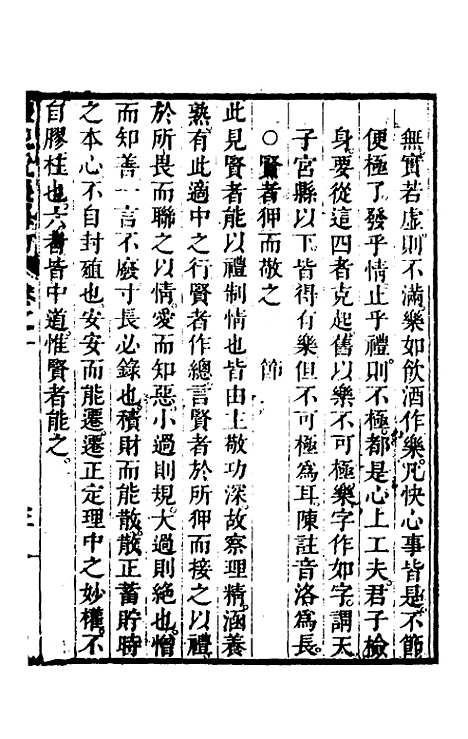 無實若虛則不滿樂如飲酒作樂凡快心事皆是不節
便極了發乎情止乎禮則不極都是心上工夫君子檢
身要從這四者克起舊以樂不可極樂字作如字謂天
子宮縣以下皆得有樂但不可極為耳陳註音洛為長
○賢者狎而敬之　節
此見賢者能以禮制情也皆由主敬功深故察理精涵養
熟有此適中之行賢者作總言賢者於所狎而接之以禮
於所畏而聯之以情愛而知惡小過則規大過則絕也憎
而知善一言不廢寸長必錄也積財而能散散正蓄貯時
之本心不自封殖也安安而能遷遷正定理中之妙權不
自膠柱也六者皆中道惟賢者能之